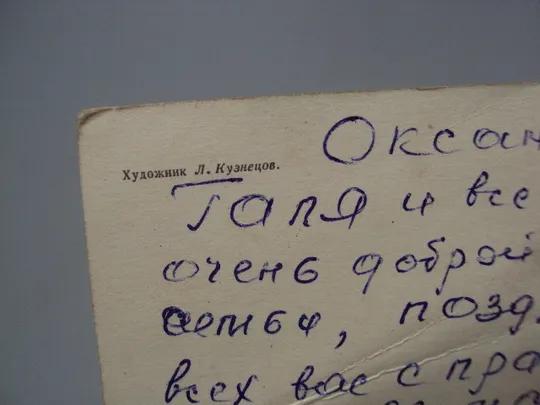 Оксан
Художник Л. Кузнецов.
Галя и все
очень доброй
семьи, позд
всех вас с пра